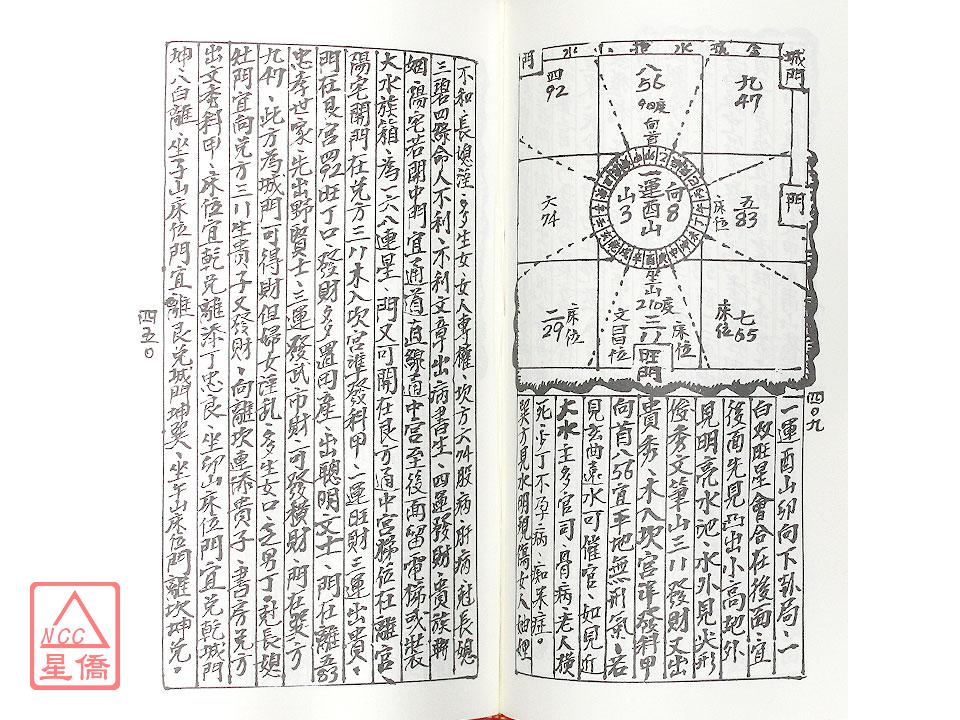 門
水 抱 水 玩 金
城門
四
92
八
56
90度
向首
九
47
六
74
一運
向8
酉
山3
山
五
83
床位
門
二
29
床位
坐山
210度
文昌位
三八
床位
旺門
床位
七
65
四〇九
一運酉山卯向下卦局、一
白双旺星會合在後面、宜
後面先見凸出小高地外
見明亮水池、水外見尖形
俊秀文筆山三八發財又出
貴秀、木入坎宮準發科甲
向首八56宜平地無形氣、若
見玄曲遠水可催官、如見近
大水主多官司、骨病、老人橫
死、少丁不孕、病、痴呆症。
巽方見水明現傷女人
不和、長媳淫、多生女、女人專權、坎方六74股病、肝病、剋長媳
三碧四綠命人不利、亦利文章、出病書生、四運發財、貴族聯
姻、陽宅若開中門宜通道直線通中宮至後面留電梯或裝
大水族箱、為一六八連星、門又可開在艮方通中宮梯位在離宮、
陽宅開門在兌方三八木入坎宮準發科甲、一運旺財、三運出貴、
門在艮宮四92旺丁口、發財多多置田產、出聰明、文士、門在離五83
忠孝世家、先出野賢士、三運發武市財、可發橫財、門在巽方
九47、此方為城門可得財但婦女淫乱、多生女口、乏男丁、剋長媳
牡門宜向兌方三八生貴子又發財、向離坎連添貴子、書房兌方
出文秀科甲、床位宜乾兌離添丁忠良、坐卯山床位門宜兌乾城門
坤八白離、坐子山床位門宜離艮兌城門坤巽、坐午山床位門離坎坤兌。
四五〇
NCC
星僑